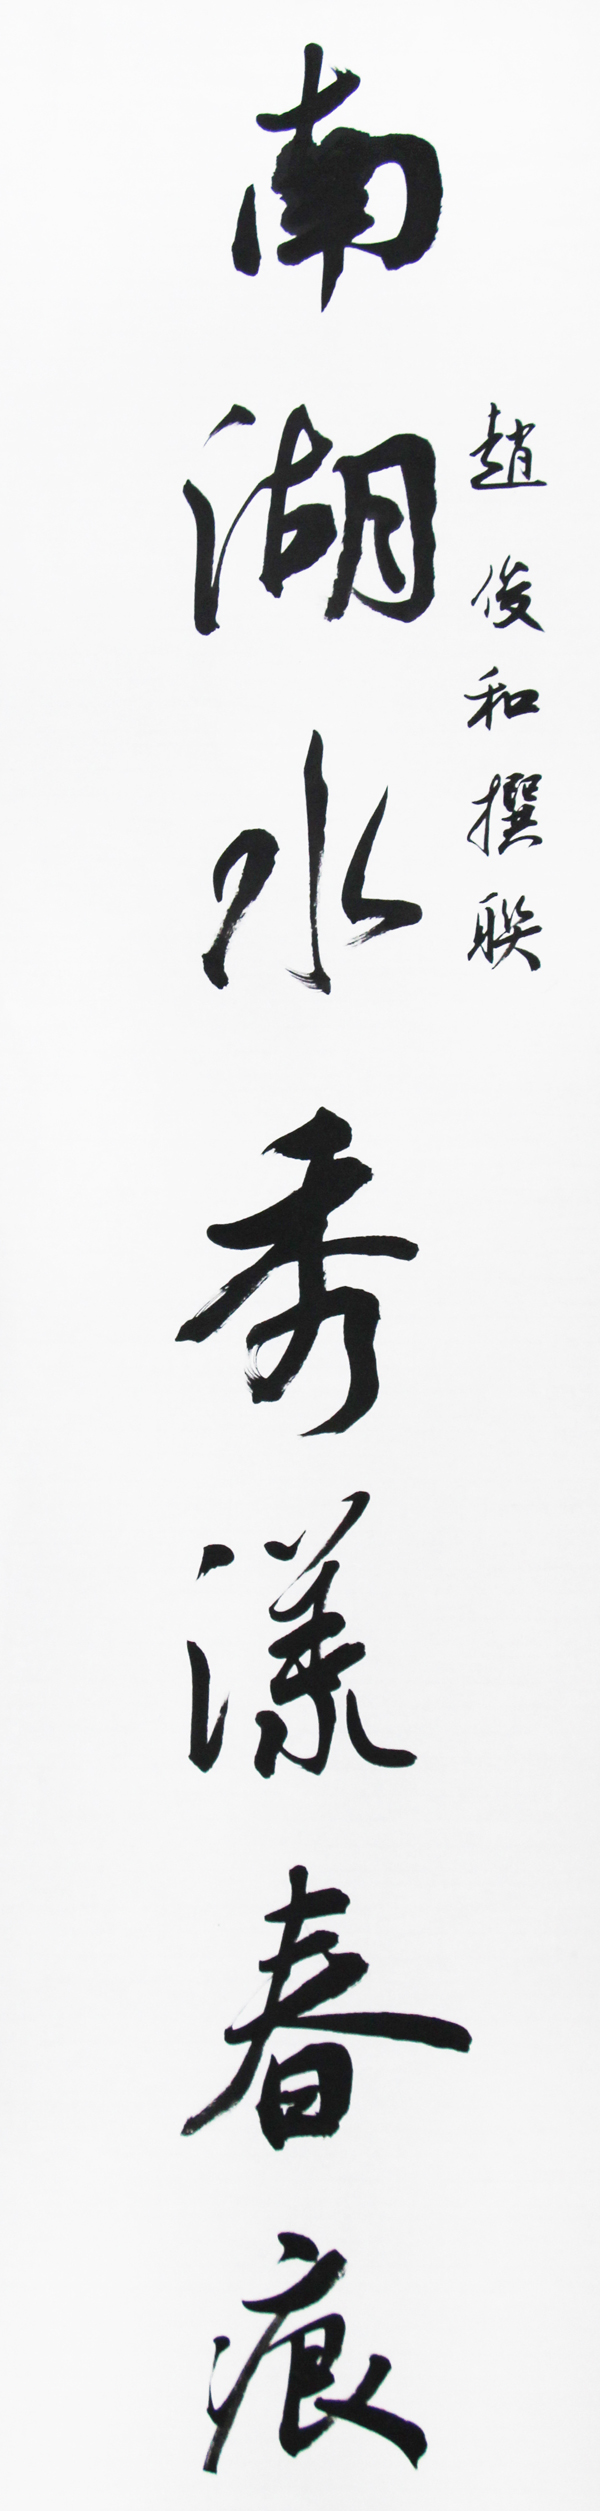 趙俊和撰联
南湖水秀漾春痕